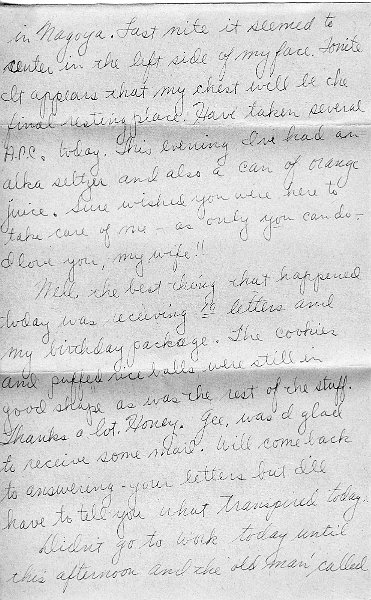 in Nagoya. Last nite it seemed to
center in the left side of my face. Tonite
it appears that my chest will be the
final resting place. Have taken several
A.P.C. today. This evening I've had an
alka seltzer and also a can of orange
juice. Sure wished you were here to
take care of me - as only you can do -
I love you, my wife!!
Well, the best thing that happened
today was receiving 10 letters and
my birthday package. The cookies
and puffed rice balls were still in
good shape as was the rest of the stuff.
Thanks a lot, Honey. Gee, was I glad
to receive some mail. Will come back
to answering your letters but I'll
have to tell you what transpired today.
Didn't go to work today until
this afternoon and the old man called